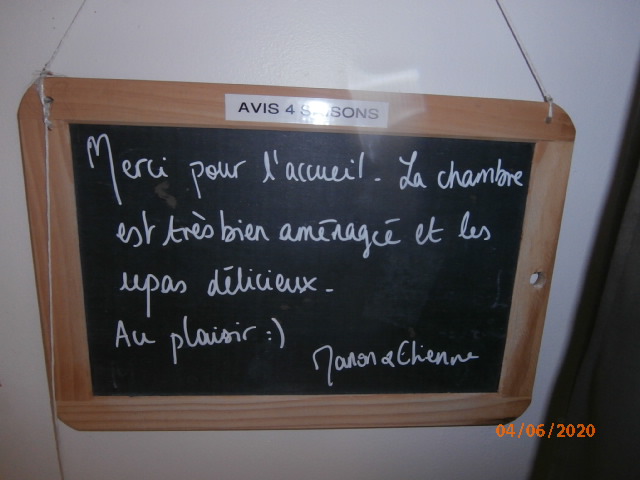 AVIS 4 SAISONS
Merci pour l'accueil. La chambre
est très bien aménagée et les
repas délicieux.
Au plaisir :)
Manon & Etienne
04/06/2020